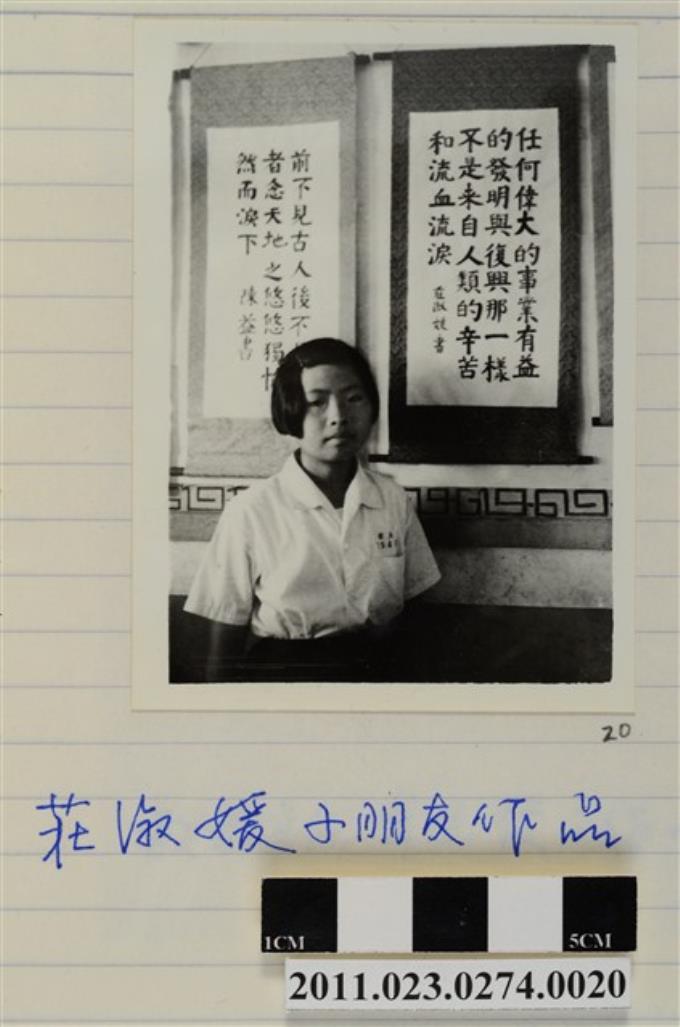 任何偉大的事業有益
的發明與復興那一樣
不是来自人類的辛苦
和流血流淚
莊淑媛書
前不見古人後不
者念天地之悠悠獨愴
然而淚下
陳益書
20
莊淑媛小朋友作品
1CM 5CM
2011.023.0274.0020